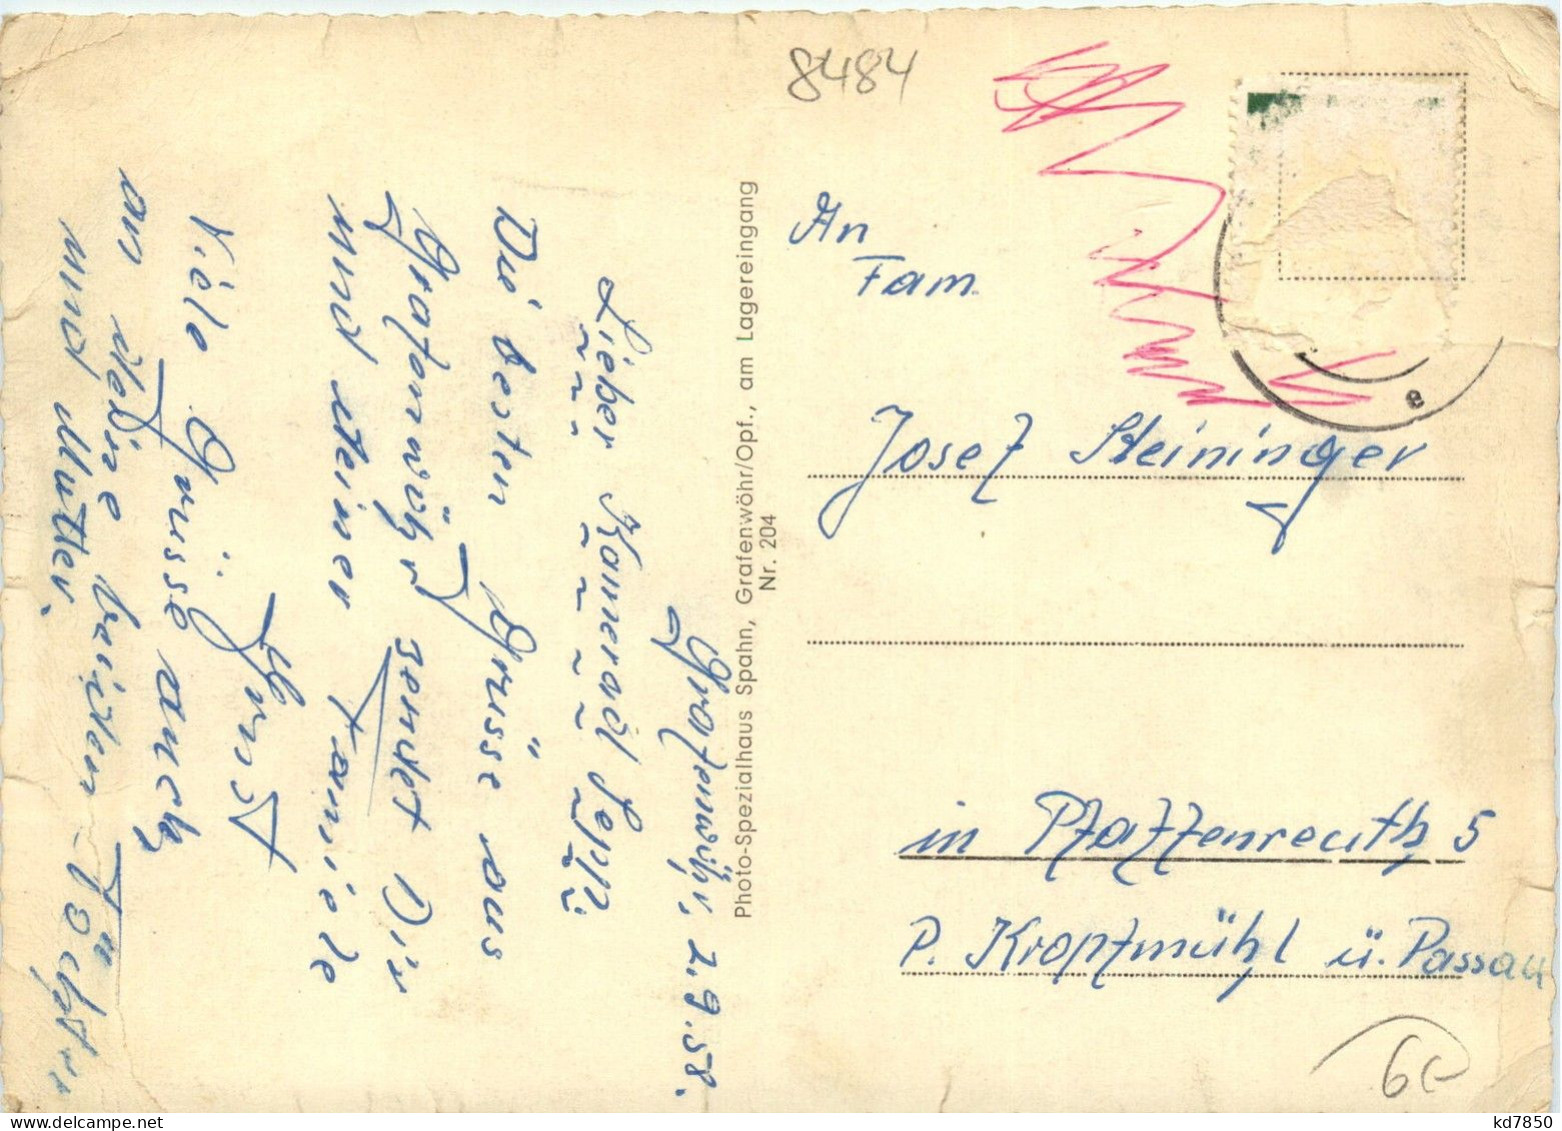 8484
An
Fam.
Josef Steininger
in Pfaffenreuth 5
P. Kropfmühl ü. Passau
6c
e
Photo-Spezialhaus Spahn, Grafenwöhr/Opf., am Lagereingang
Nr. 204
Grafenwöhr, 2.9.58.
Lieber Kamerad Sepp.
Die besten Grüsse aus
Grafenwöhr sendet Dir
und deiner Familie
Horst
Viele Grüsse auch
an deine beiden Töchter
und Mutter.
kd7850